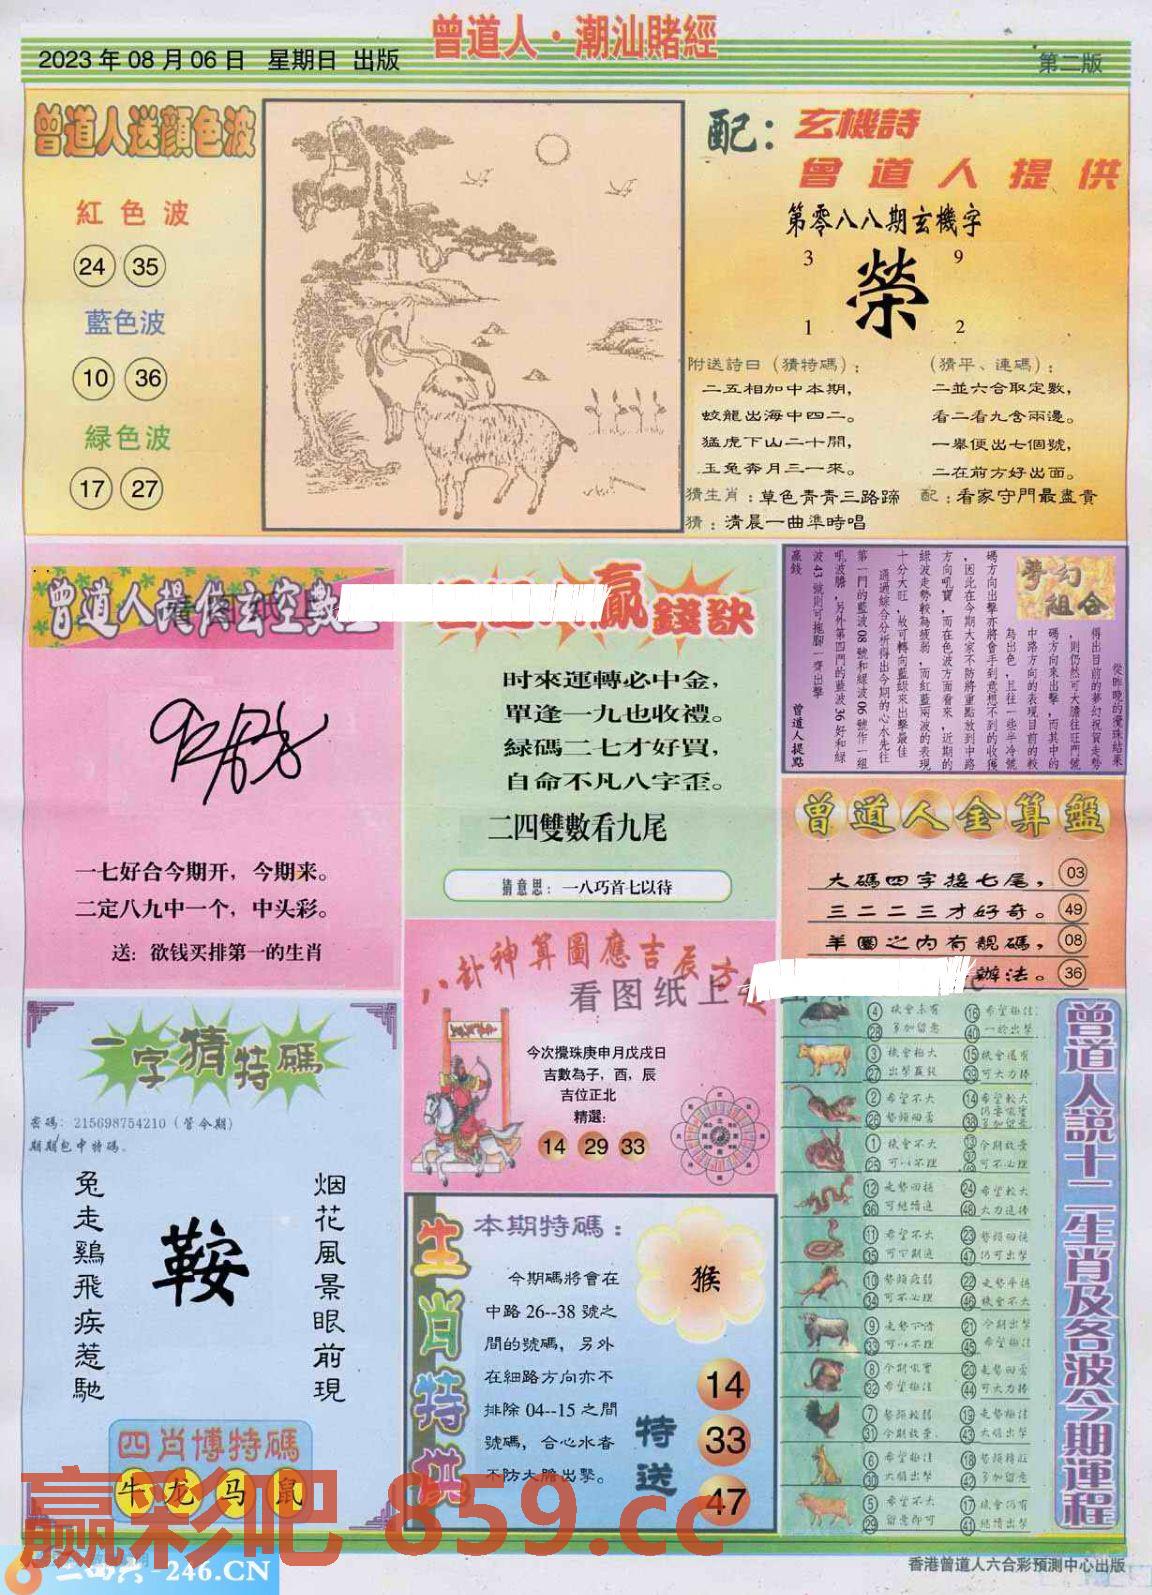 曾道人·潮汕賭經
2023年08月06日 星期日 出版
第二版
曾道人送顔色波
紅色波
24 35
藍色波
10 36
緑色波
17 27
配：玄機詩
曾道人提供
第零八八期玄機字
3 9
榮
1 2
附送詩曰（猜特碼）：
二五相加中本期，
蛟龍出海中四二。
猛虎下山二十開，
玉兔奔月三一來。
（猜平、連碼）：
二並六合取定數，
看二看九含兩邊。
一舉便出七個號，
二在前方好出面。
猜生肖：草色青青三路蹄
配：看家守門最盡責
猜：清晨一曲準時唱
曾道人提供玄空數
时來運轉必中金，
單逢一九也收禮。
緑碼二七才好買，
自命不凡八字歪。
二四雙數看九尾
猜意思：一八巧首七以待
贏錢訣
一七好合今期开，今期来。
二定八九中一个，中头彩。
送：欲钱买排第一的生肖
夢幻組合
從昨晚的攪珠結果
得出目前的夢幻祝賀走勢
，則仍然可大膽往旺門號
碼方向來出擊，而其中的
中路方向的表現目前的較
為出色，且往一些半冷號
碼方向出擊亦將會手到意想不到的收獲
，因此在今期大家不防將重點放到中路
方向吼寶，而在色波方面看來，近期的
緑波走勢較為疲弱，而紅藍兩波的表現
十分大旺，故可轉向藍緑來出擊最佳
。通過綜合分析得出今期的心水先往
第一門的藍波08號和緑波06號作一組
吼波膽，另外第四門的藍波36好和緑
波43號則可拖腳一齊出擊
贏錢
曾道人提點
曾道人金算盤
大碼四字接七尾， 03
三二二三才好奇。 49
羊圈之内有靚碼， 08
辦法。 36
八卦神算圖應吉辰
看图纸上
今次攪珠庚申月戊戌日
吉數為子，酉，辰
吉位正北
精選：
14 29 33
一字猜特碼
密碼：215698754210（管今期）
期期包中特碼。
兔走鷄飛疾惹馳
鞍
烟花風景眼前現
四肖博特碼
牛 龙 马 鼠
生肖特供
本期特碼：
今期碼將會在
中路26--38號之
間的號碼，另外
在細路方向亦不
排除04--15之間
號碼，合心水者
不防大膽出擊。
猴
特送
14
33
47
曾道人說十二生肖及各波今期運程
4 機會未有 16 希望極佳
28 多加留意 40 一於出擊
3 機會極大 15 機會還有
27 出擊贏錢 39 可大力捧
2 希望不大 14 希望較大
26 勢頭回落 38 多加留意
1 機會不大 13 今期放棄
25 可以不理 可不必理
12 走勢回穩 24 希望較大
36 可繼續追 48 大力追捧
11 希望不大 23 勢頭回復
35 可下期追 47 仍可出擊
10 勢頭疲弱 22 走勢平穩
34 可不必理 46 機會不大
9 走勢下滑 21 今期出擊
33 可以不理 45 希望極佳
8 今期吼寶 20 走勢回落
32 希望極佳 44 可大力捧
7 勢頭較弱 19 走勢極佳
31 今期放棄 43 大膽出擊
6 希望極佳 18 勢頭轉旺
30 大膽出擊 42 多加留意
5 希望不大 17 機會仍有
29 留意即可 41 繼續出擊
赢彩吧 859.cc
二四六-246.CN
香港曾道人六合彩預測中心出版